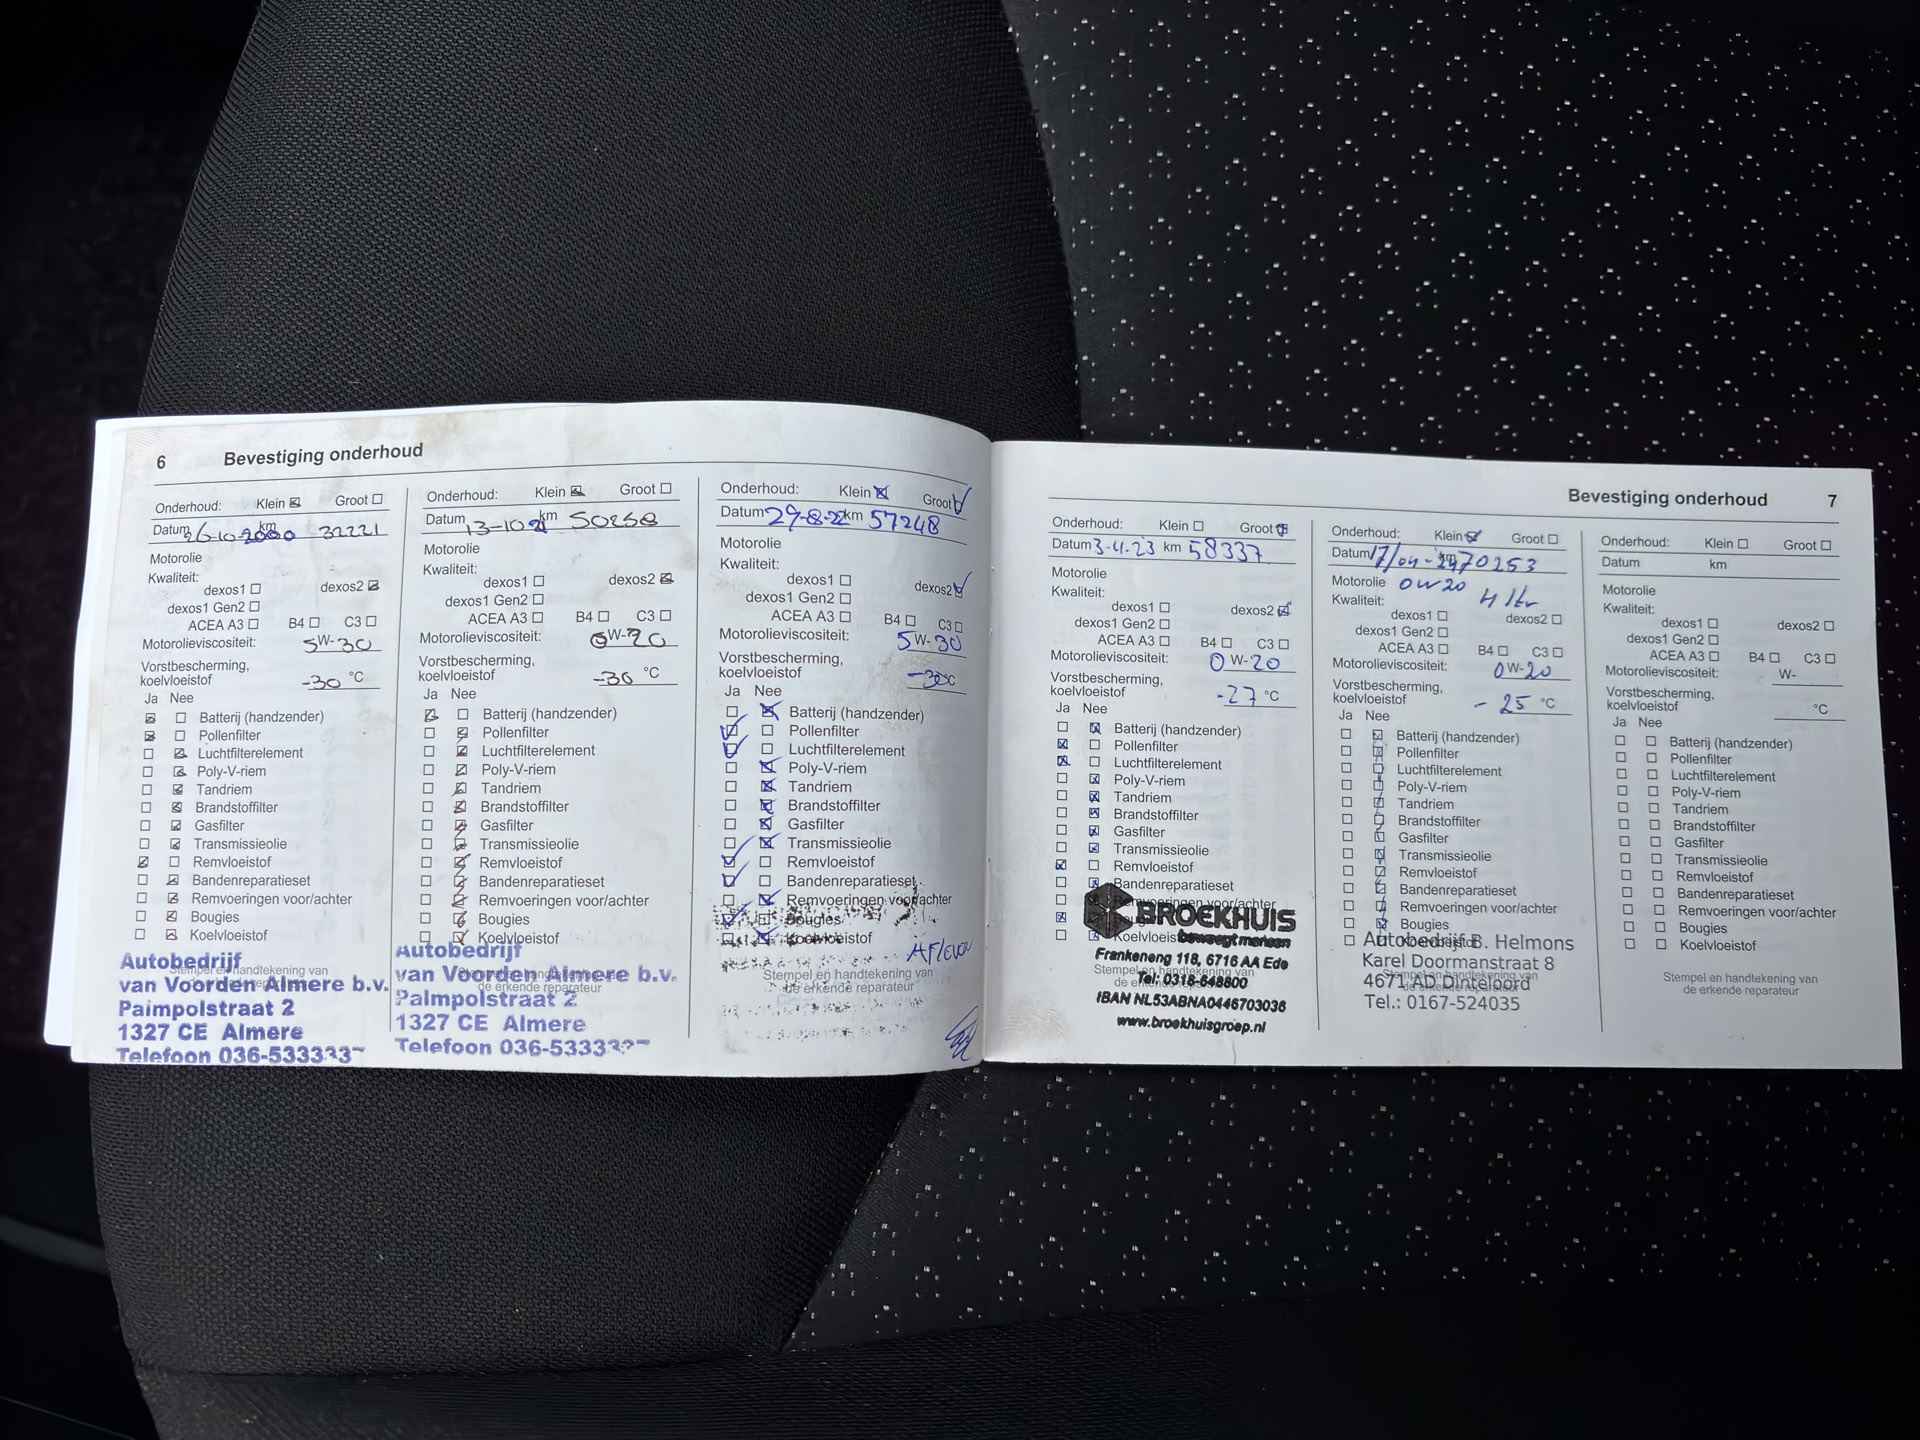 6 Bevestiging onderhoud
Onderhoud: Klein Groot
Datum 26-10-2000 km 32221
Motorolie
Kwaliteit:
dexos1 dexos2
dexos1 Gen2
ACEA A3 B4 C3
Motorolieviscositeit: 5W-30
Vorstbescherming,
koelvloeistof -30 °C
Ja Nee
Batterij (handzender)
Pollenfilter
Luchtfilterelement
Poly-V-riem
Tandriem
Brandstoffilter
Gasfilter
Transmissieolie
Remvloeistof
Bandenreparatieset
Remvoeringen voor/achter
Bougies
Koelvloeistof
Stempel en handtekening van
Autobedrijf
van Voorden Almere b.v.
Paimpolstraat 2
1327 CE Almere
Telefoon 036-5333337
Onderhoud: Klein Groot
Datum 13-10-21 km 50258
Motorolie
Kwaliteit:
dexos1 dexos2
dexos1 Gen2
ACEA A3 B4 C3
Motorolieviscositeit: 0W-20
Vorstbescherming,
koelvloeistof -30 °C
Ja Nee
Batterij (handzender)
Pollenfilter
Luchtfilterelement
Poly-V-riem
Tandriem
Brandstoffilter
Gasfilter
Transmissieolie
Remvloeistof
Bandenreparatieset
Remvoeringen voor/achter
Bougies
Koelvloeistof
de erkende reparateur
Autobedrijf
van Voorden Almere b.v.
Palmpolstraat 2
1327 CE Almere
Telefoon 036-5333
Onderhoud: Klein Groot
Datum 29-8-22 km 57248
Motorolie
Kwaliteit:
dexos1 dexos2
dexos1 Gen2
ACEA A3 B4 C3
Motorolieviscositeit: 5W-30
Vorstbescherming,
koelvloeistof -30°C
Ja Nee
Batterij (handzender)
Pollenfilter
Luchtfilterelement
Poly-V-riem
Tandriem
Brandstoffilter
Gasfilter
Transmissieolie
Remvloeistof
Bandenreparatieset
Remvoeringen voor/achter
Bougies
Koelvloeistof
Stempel en handtekening van
de erkende reparateur
Bevestiging onderhoud 7
Onderhoud: Klein Groot
Datum 3-4-23 km 58337
Motorolie
Kwaliteit:
dexos1 dexos2
dexos1 Gen2
ACEA A3 B4 C3
Motorolieviscositeit: 0W-20
Vorstbescherming,
koelvloeistof -27 °C
Ja Nee
Batterij (handzender)
Pollenfilter
Luchtfilterelement
Poly-V-riem
Tandriem
Brandstoffilter
Gasfilter
Transmissieolie
Remvloeistof
Bandenreparatieset
Remvoeringen voor/achter
Koelvloeistof
Stempel en handtekening van
de erkende reparateur
BROEKHUIS
beweegt mensen
Frankeneng 118, 6716 AA Ede
Tel: 0318-648800
IBAN NL53ABNA0446703036
www.broekhuisgroep.nl
Onderhoud: Klein Groot
Datum 17/04-24 km 70253
Motorolie 0W20 4 ltr
Kwaliteit:
dexos1 dexos2
dexos1 Gen2
ACEA A3 B4 C3
Motorolieviscositeit: 0W-20
Vorstbescherming,
koelvloeistof -25 °C
Ja Nee
Batterij (handzender)
Pollenfilter
Luchtfilterelement
Poly-V-riem
Tandriem
Brandstoffilter
Gasfilter
Transmissieolie
Remvloeistof
Bandenreparatieset
Remvoeringen voor/achter
Bougies
Autobedrijf B. Helmons
Karel Doormanstraat 8
4671 AD Dinteloord
Tel.: 0167-524035
Onderhoud: Klein Groot
Datum km
Motorolie
Kwaliteit:
dexos1 dexos2
dexos1 Gen2
ACEA A3 B4 C3
Motorolieviscositeit: W-
Vorstbescherming,
koelvloeistof °C
Ja Nee
Batterij (handzender)
Pollenfilter
Luchtfilterelement
Poly-V-riem
Tandriem
Brandstoffilter
Gasfilter
Transmissieolie
Remvloeistof
Bandenreparatieset
Remvoeringen voor/achter
Bougies
Koelvloeistof
Stempel en handtekening van
de erkende reparateur